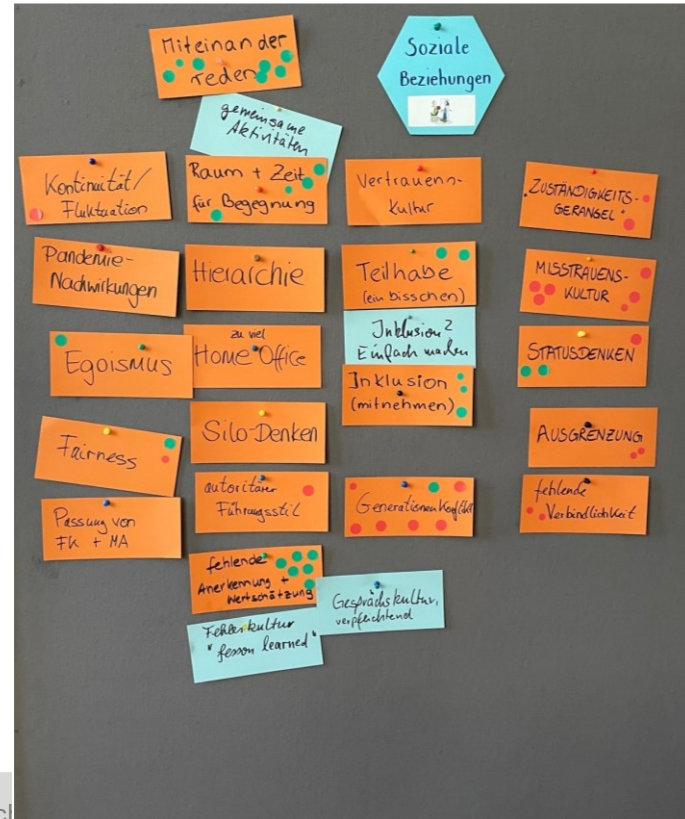 Miteinander
reden
Soziale
Beziehungen
gemeinsame
Aktivitäten
Kontinuität/
Fluktuation
Raum + Zeit
für Begegnung
Vertrauens-
kultur
"ZUSTÄNDIGKEITS-
GERANGEL"
Pandemie-
Nachwirkungen
Hierarchie
Teilhabe
(ein bisschen)
MISSTRAUENS-
KULTUR
Egoismus
zu viel
Home Office
Inklusion?
Einfach machen
STATUSDENKEN
Inklusion
(mitnehmen)
Fairness
Silo-Denken
AUSGRENZUNG
Passung von
FK + MA
autoritärer
Führungsstil
Generationenkonflikt
fehlende
Verbindlichkeit
fehlende
Anerkennung +
Wertschätzung
Gesprächskultur,
verpflichtend
Fehlerkultur
"lesson learned"